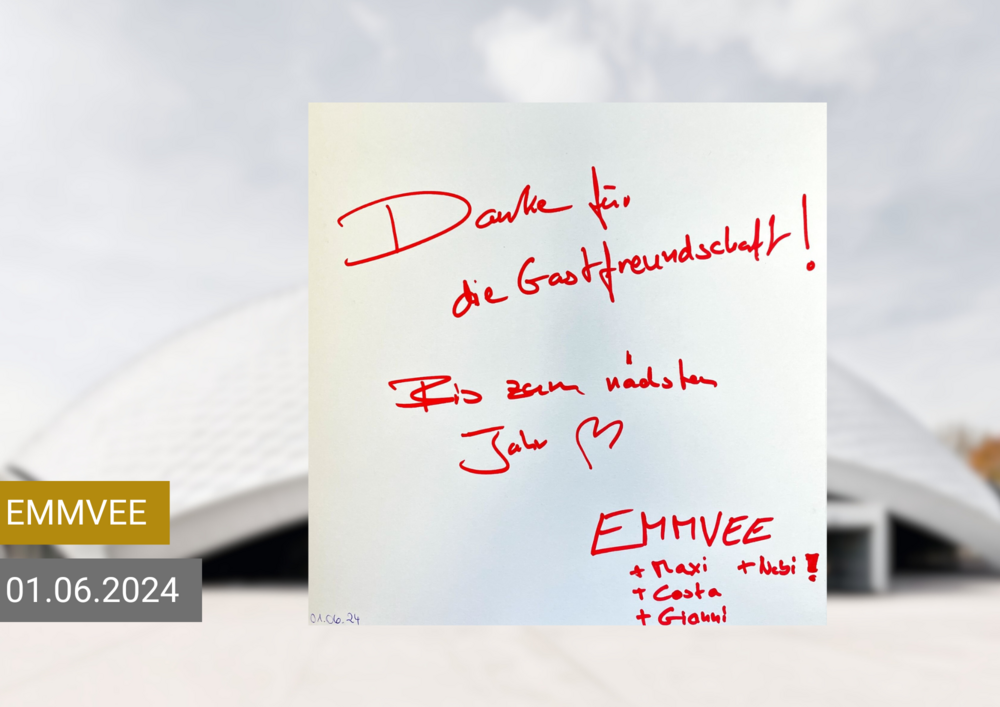 Danke für
die Gastfreundschaft!
Bis zum nächsten
Jahr
EMMVEE
+ Maxi + Nebi!
+ Costa
+ Gianni
01.06.24
EMMVEE
01.06.2024